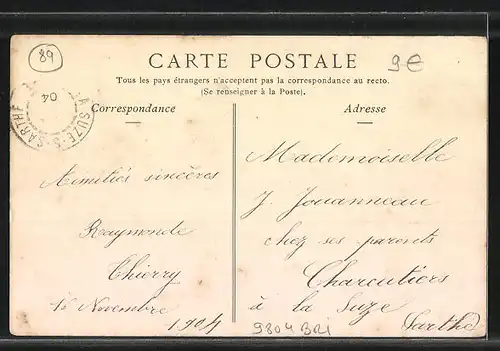 89
9€
CARTE POSTALE
Tous les pays étrangers n'acceptent pas la correspondance au recto.
(Se renseigner à la Poste).
Correspondance
Adresse
LA SUZE-S-SARTHE
04
Amitiés sincères
Raymonde
Thierry
15 Novembre
1904
Mademoiselle
J. Jouanneau
chez ses parents
Charcutiers
à la Suze
Sarthe
9804 BRI